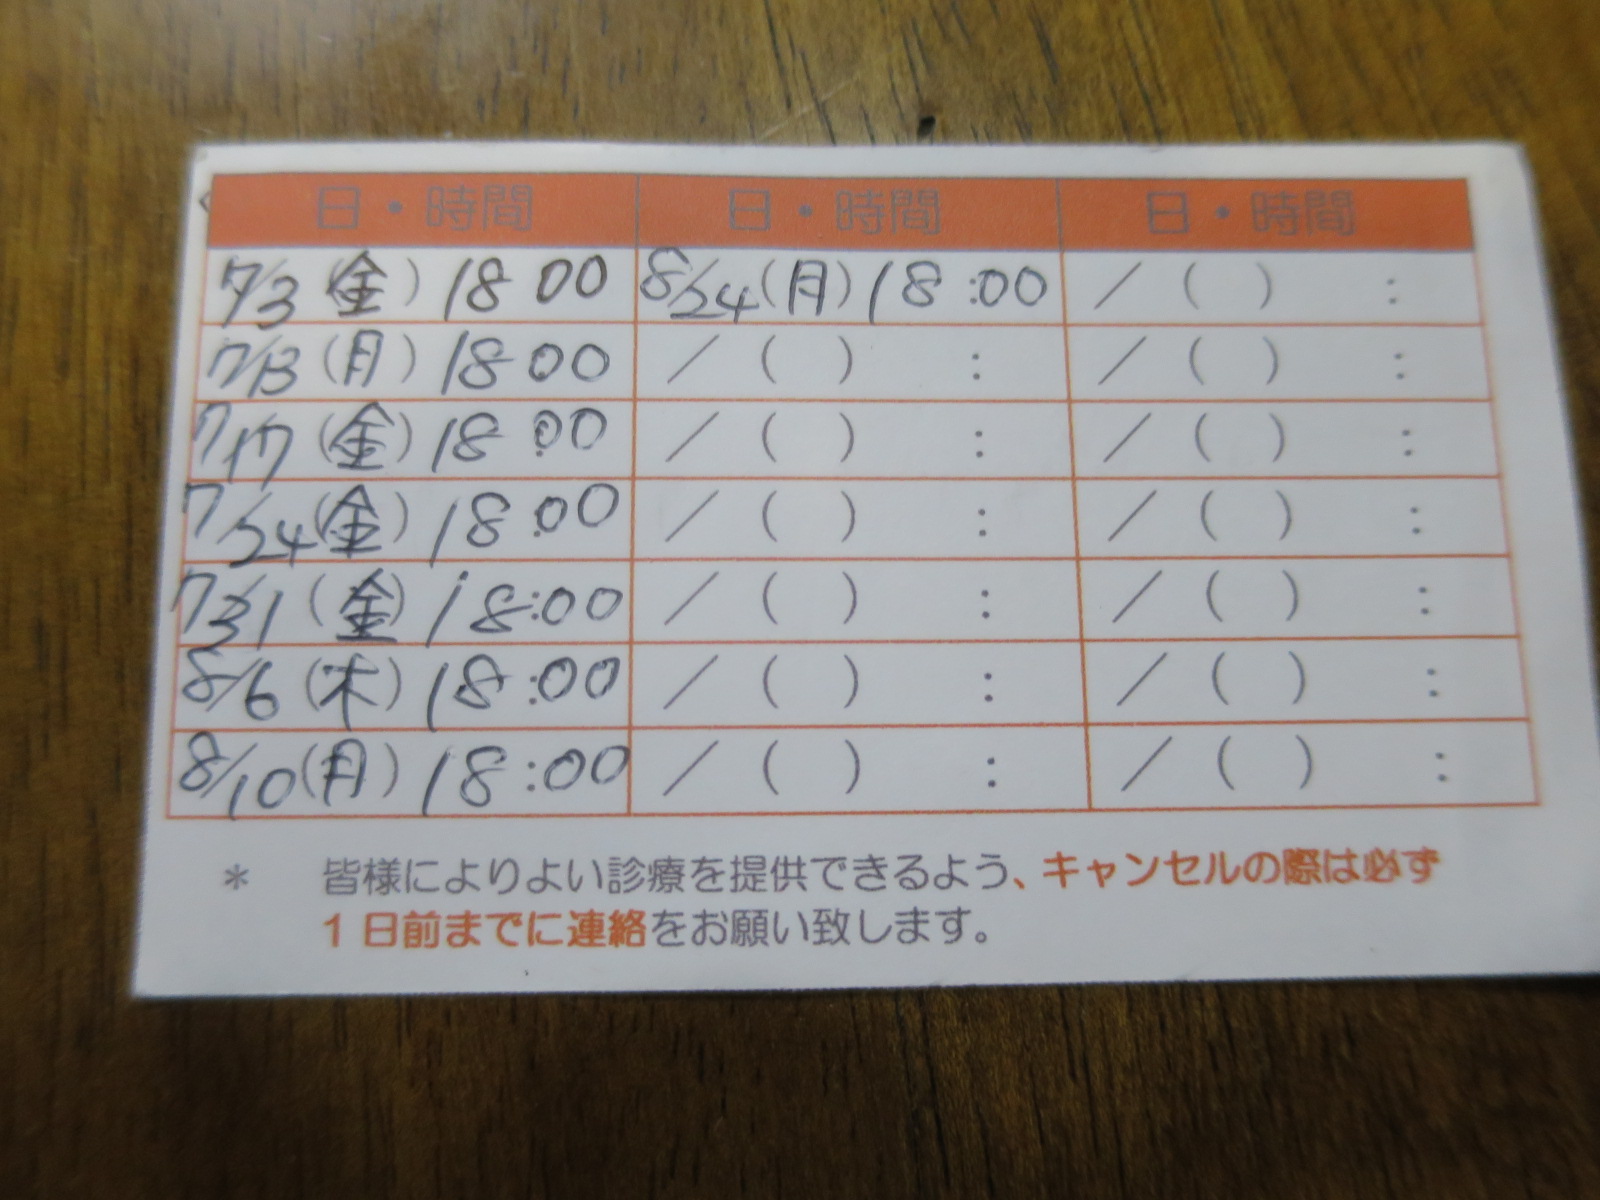 日・時間 日・時間 日・時間
7/3 (金) 18 00 8/24 (月) 18:00 / ( ) :
7/13 (月) 18 00 / ( ) : / ( ) :
7/17 (金) 18:00 / ( ) : / ( ) :
7/24 (金) 18:00 / ( ) : / ( ) :
7/31 (金) 18:00 / ( ) : / ( ) :
8/6 (木) 18:00 / ( ) : / ( ) :
8/10 (月) 18:00 / ( ) : / ( ) :
* 皆様によりよい診療を提供できるよう、キャンセルの際は必ず
1日前までに連絡をお願い致します。